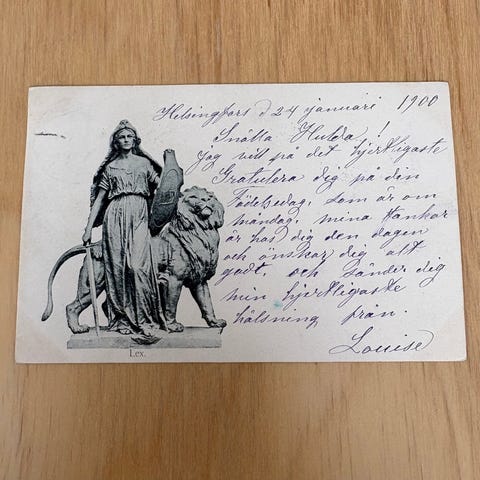 Helsingfors d 24 januari 1900
Snälla Hulda!
Jag vill på det hjertligaste
Gratulera dig på din
Födelsedag, som är om
måndag, mina tankar
är hos dig den dagen
och önskar dig allt
godt, och sänder dig
min hjertligaste
hälsning från.
Louise
Lex.